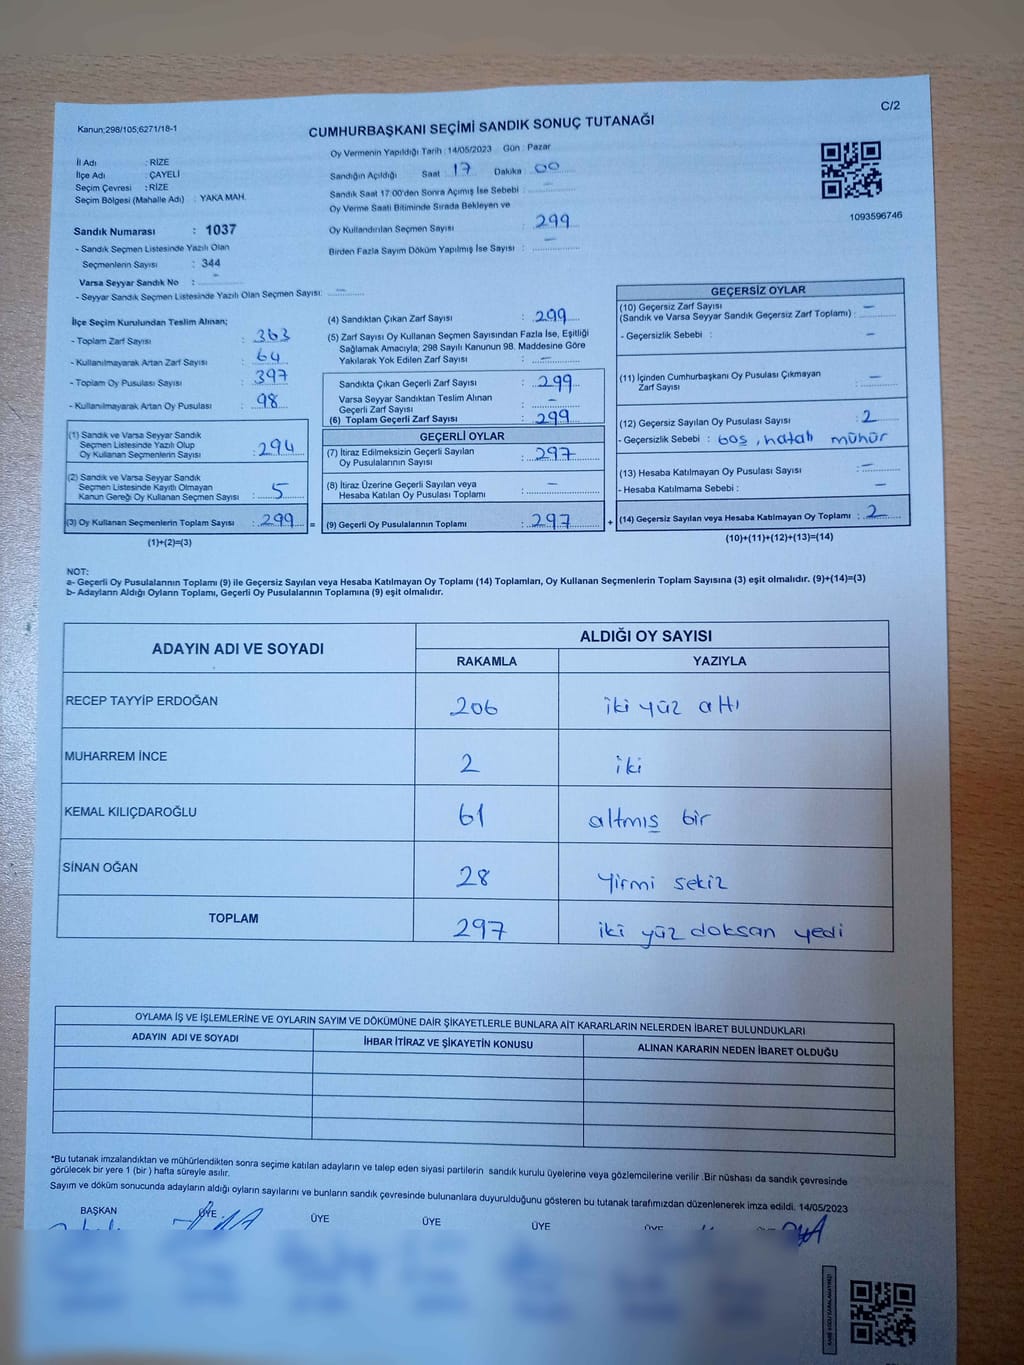 C/2
Kanun:298/105;6271/18-1
CUMHURBAŞKANI SEÇİMİ SANDIK SONUÇ TUTANAĞI
İl Adı : RİZE
İlçe Adı : ÇAYELİ
Seçim Çevresi : RİZE
Seçim Bölgesi (Mahalle Adı) : YAKA MAH.
Oy Vermenin Yapıldığı Tarih : 14/05/2023 Gün : Pazar
Sandığın Açıldığı Saat : 17 Dakika : 00
Sandık Saat 17:00'den Sonra Açımış İse Sebebi : –
Oy Verme Saati Bitiminde Sırada Bekleyen ve
Oy Kullandırılan Seçmen Sayısı : 299
Birden Fazla Sayım Döküm Yapılmış İse Sayısı : –
1093596746
Sandık Numarası : 1037
- Sandık Seçmen Listesinde Yazılı Olan
Seçmenlerin Sayısı : 344
Varsa Seyyar Sandık No : –
- Seyyar Sandık Seçmen Listesinde Yazılı Olan Seçmen Sayısı: –
İlçe Seçim Kurulundan Teslim Alınan;
- Toplam Zarf Sayısı : 363
- Kullanılmayarak Artan Zarf Sayısı : 64
- Toplam Oy Pusulası Sayısı : 397
- Kullanılmayarak Artan Oy Pusulası : 98
(1) Sandık ve Varsa Seyyar Sandık
Seçmen Listesinde Yazılı Olup
Oy Kullanan Seçmenlerin Sayısı : 294
(2) Sandık ve Varsa Seyyar Sandık
Seçmen Listesinde Kayıtlı Olmayan
Kanun Gereği Oy Kullanan Seçmen Sayısı : 5
(3) Oy Kullanan Seçmenlerin Toplam Sayısı : 299 =
(1)+(2)=(3)
(4) Sandıktan Çıkan Zarf Sayısı : 299
(5) Zarf Sayısı Oy Kullanan Seçmen Sayısından Fazla İse, Eşitliği
Sağlamak Amacıyla; 298 Sayılı Kanunun 98. Maddesine Göre
Yakılarak Yok Edilen Zarf Sayısı : –
Sandıkta Çıkan Geçerli Zarf Sayısı : 299
Varsa Seyyar Sandıktan Teslim Alınan
Geçerli Zarf Sayısı : –
(6) Toplam Geçerli Zarf Sayısı : 299
GEÇERLİ OYLAR
(7) İtiraz Edilmeksizin Geçerli Sayılan
Oy Pusulalarının Sayısı : 297
(8) İtiraz Üzerine Geçerli Sayılan veya
Hesaba Katılan Oy Pusulası Toplamı : –
(9) Geçerli Oy Pusulalarının Toplamı : 297 +
GEÇERSİZ OYLAR
(10) Geçersiz Zarf Sayısı
(Sandık ve Varsa Seyyar Sandık Geçersiz Zarf Toplamı) : –
- Geçersizlik Sebebi : –
(11) İçinden Cumhurbaşkanı Oy Pusulası Çıkmayan
Zarf Sayısı : –
(12) Geçersiz Sayılan Oy Pusulası Sayısı : 2
- Geçersizlik Sebebi : boş, hatalı mühür
(13) Hesaba Katılmayan Oy Pusulası Sayısı : –
- Hesaba Katılmama Sebebi : –
(14) Geçersiz Sayılan veya Hesaba Katılmayan Oy Toplamı : 2
(10)+(11)+(12)+(13)=(14)
NOT:
a- Geçerli Oy Pusulalarının Toplamı (9) ile Geçersiz Sayılan veya Hesaba Katılmayan Oy Toplamı (14) Toplamları, Oy Kullanan Seçmenlerin Toplam Sayısına (3) eşit olmalıdır. (9)+(14)=(3)
b- Adayların Aldığı Oyların Toplamı, Geçerli Oy Pusulalarının Toplamına (9) eşit olmalıdır.
ADAYIN ADI VE SOYADI
ALDIĞI OY SAYISI
RAKAMLA YAZIYLA
RECEP TAYYİP ERDOĞAN 206 iki yüz altı
MUHARREM İNCE 2 iki
KEMAL KILIÇDAROĞLU 61 altmış bir
SİNAN OĞAN 28 yirmi sekiz
TOPLAM 297 iki yüz doksan yedi
OYLAMA İŞ VE İŞLEMLERİNE VE OYLARIN SAYIM VE DÖKÜMÜNE DAİR ŞİKAYETLERLE BUNLARA AİT KARARLARIN NELERDEN İBARET BULUNDUKLARI
ADAYIN ADI VE SOYADI İHBAR İTİRAZ VE ŞİKAYETİN KONUSU ALINAN KARARIN NEDEN İBARET OLDUĞU
*Bu tutanak imzalandıktan ve mühürlendikten sonra seçime katılan adayların ve talep eden siyasi partilerin sandık kurulu üyelerine veya gözlemcilerine verilir .Bir nüshası da sandık çevresinde
görülecek bir yere 1 (bir ) hafta süreyle asılır.
Sayım ve döküm sonucunda adayların aldığı oyların sayılarını ve bunların sandık çevresinde bulunanlara duyurulduğunu gösteren bu tutanak tarafımızdan düzenlenerek imza edildi. 14/05/2023
BAŞKAN ÜYE ÜYE ÜYE ÜYE ÜYE